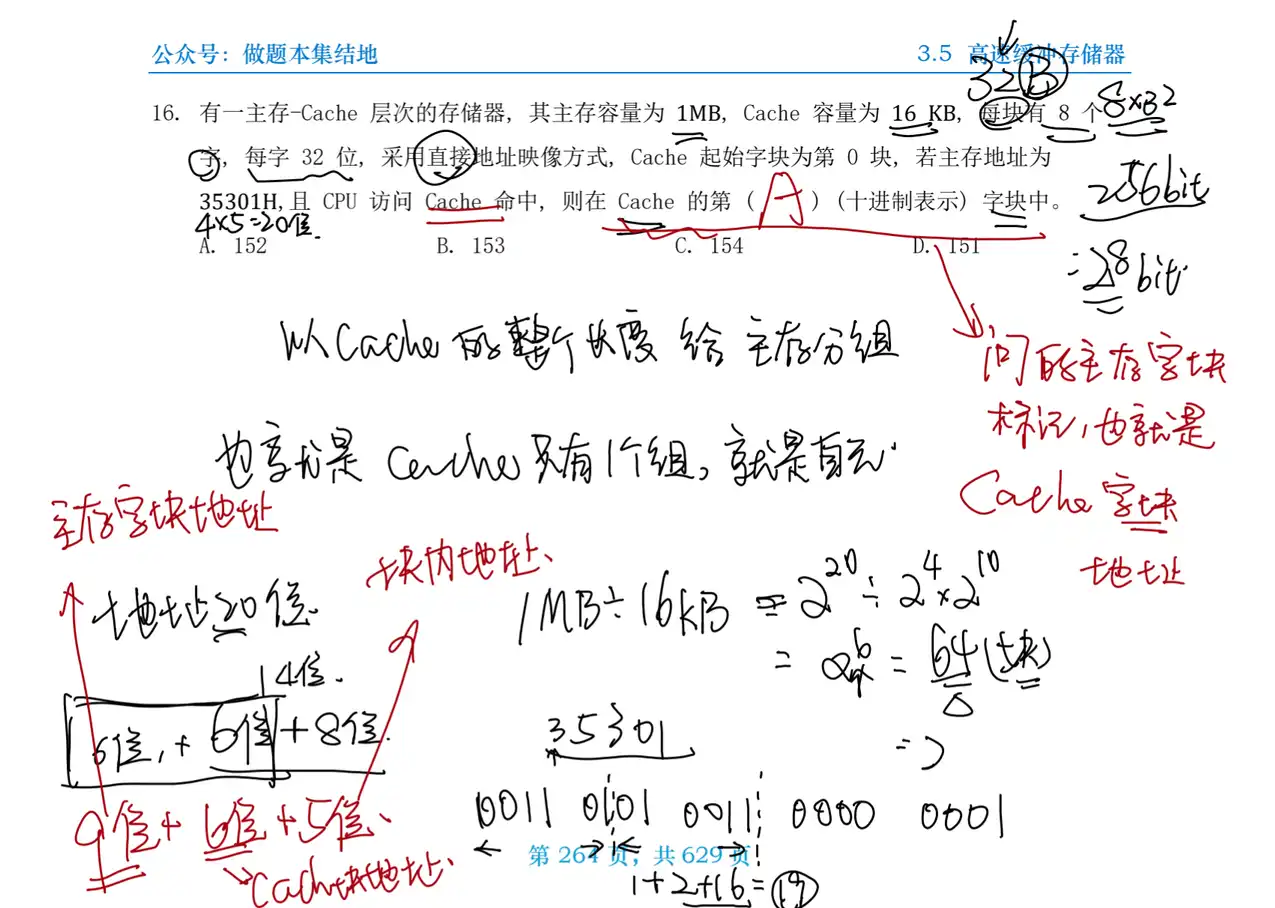 公众号：做题本集结地
3.5 高速缓冲存储器
32B
16. 有一主存-Cache 层次的存储器, 其主存容量为 1MB, Cache 容量为 16 KB, 每块有 8 个
8×32
字, 每字 32 位, 采用直接地址映像方式, Cache 起始字块为第 0 块, 若主存地址为
256bit
35301H,且 CPU 访问 Cache 命中, 则在 Cache 的第 ( A ) (十进制表示) 字块中。
4×5=20位.
A. 152 B. 153 C. 154 D. 151
=2^8bit
以Cache的整个长度 给 主存分组
问的主存字块
标记, 也就是
Cache 字块
地址
也就是 Cache只有1个组, 就是自己
主存字块地址
块内地址、
地址20位.
1MB÷16KB = 2^20 ÷ 2^4×2^10
= 2^6 = 64(块)
14位.
6位, + 6位 + 8位.
35301
=>
9位+ 6位 +5位、
0011 0101 0011 0000 0001
第 264 页，共 629 页
Cache块地址.
1+2+16=19